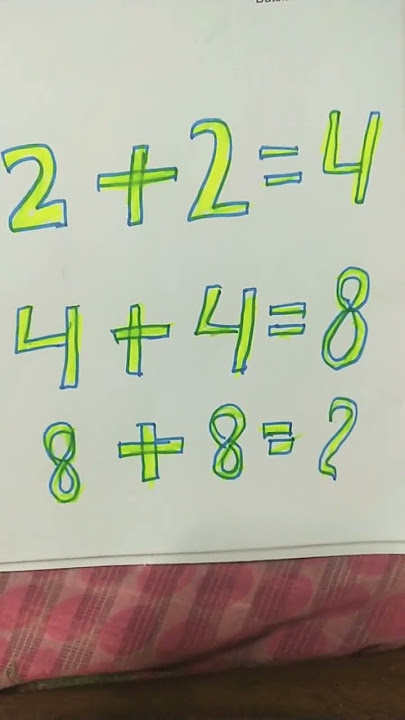 2 + 2 = 4
4 + 4 = 8
8 + 8 = ?